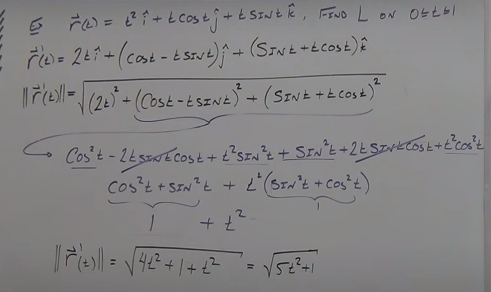 Ex r⃗(t) = t² î + t cost ĵ + t sint k̂, FIND L ON 0≤t≤1
r⃗'(t) = 2t î + (cost - t sint) ĵ + (sint + t cost) k̂
||r⃗'(t)|| = √((2t)² + (cost - t sint)² + (sint + t cost)²)
cos²t - 2t sint cost + t² sin²t + sin²t + 2t sint cost + t² cos²t
cos²t + sin²t + t²(sin²t + cos²t)
1 + t² 1
||r⃗'(t)|| = √(4t² + 1 + t²) = √(5t² + 1)